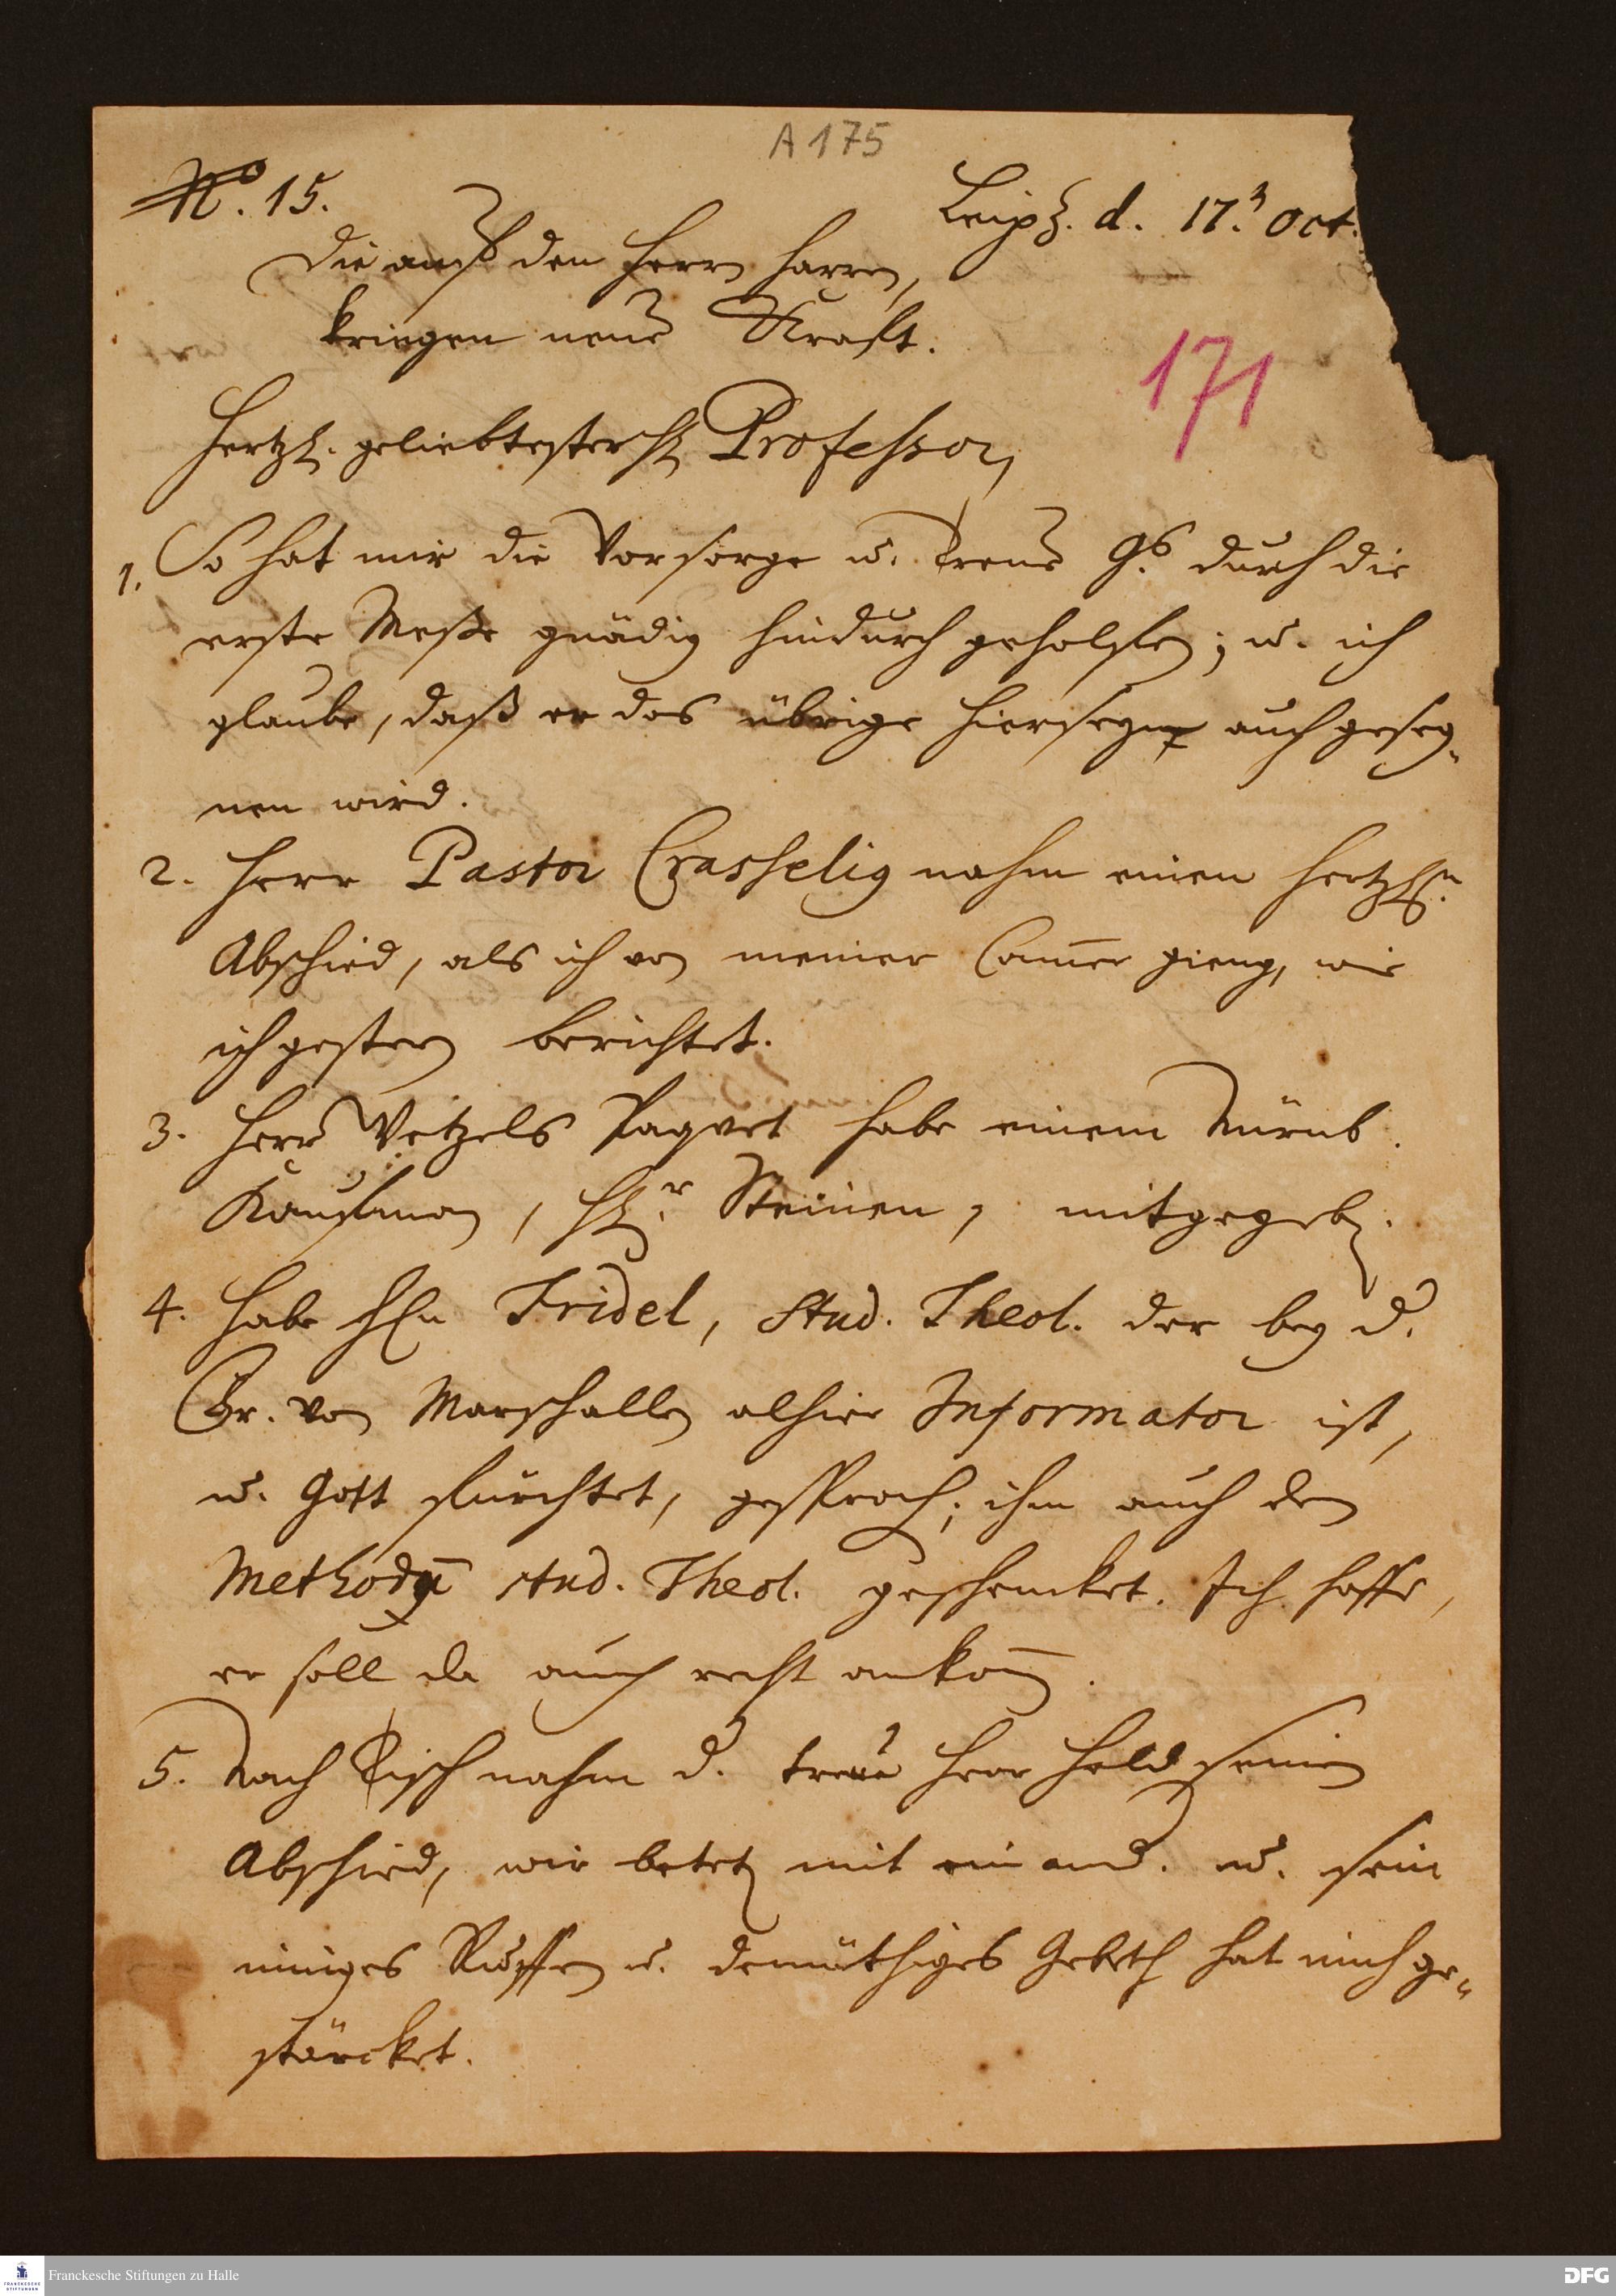 A 175
No. 15.
Leipz. d. 17. Oct.
Die auf den Herrn harren,
kriegen neue Krafft.
171
Hertzl. geliebtester H Professor,
1. So hat mir die Vorsorge u. Treue Gs. durch die
erste Meße gnädig hindurch geholffen; u. ich
glaube, daß er das übrige Hierseyn auch geseg-
nen wird.
2. Herr Pastor Crasselig nahm einen hertzln.
Abschied, als ich von meiner Cam̅er gieng, wie
ich gestern berichtet.
3. Herr Wetzels Paqvet habe einem Nürnb.
Kaufman, H. Steinen, mitgegeb.
4. Habe Hn Fridel, Stud. Theol. der bey d.
Gr. von Marschallen alhier Informator ist,
u. Gott fürchtet, gesproch; ihm auch den
Methodū stud. Theol. geschencket. Ich hoffe,
er soll da auch recht ankom̅.
5. Nach Tisch nahm d. treue Herr Held seinen
Abschied, wir betet mit einand. u. sein
inniges Ruffen u. demüthiges Gebeth hat mich ge-
stärcket.
Franckesche Stiftungen zu Halle
DFG